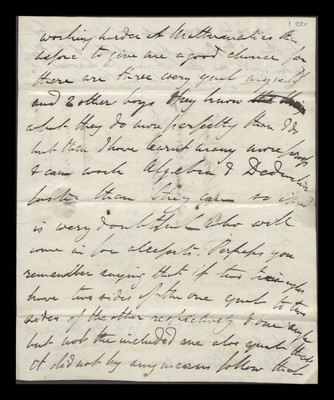 working harder at Mathematics the
before to give me a good chance for
there are three very equal myself
and 2 other boys They know the thing
what they do more perfectly than I do
but then I have learnt many more props
& can work Algebra & Deductions
faster than they can so it
is very doubtful who will
come in for Perhaps you
remember saying that if two triangles
have two sides of the one equal to two
sides of the other respectively & one angle
but not the included one also equal that
it did not by any means follow that